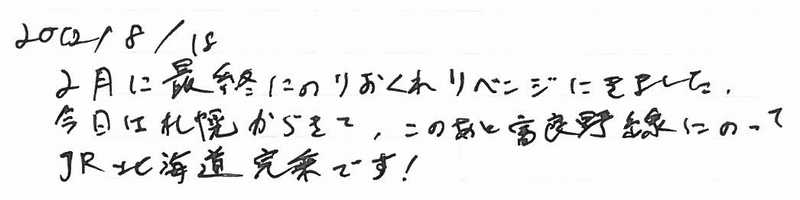 2002/8/18
2月に最終にのりおくれリベンジにきました.
今日は札幌からきて,このあと富良野線にのって
JR北海道完乗です!